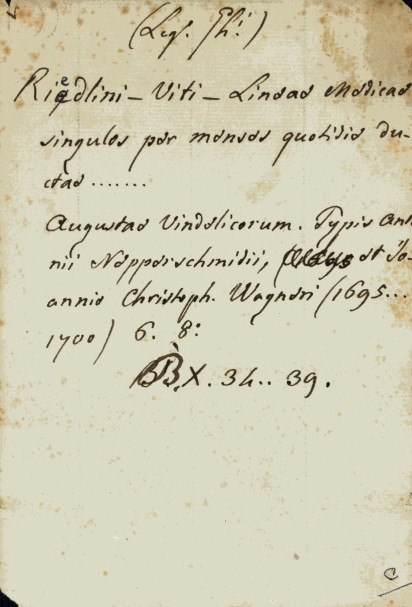 (Legs. Th:)
Riedlini - Viti - Lineae Medicae
singulos per menses quotidie du-
ctae .......
Augustae Vindelicorum. Typis Anto
nii Nepperschmidii, et Jo-
annis Christoph. Wagneri (1695...
1700) 6. 8:
BB. X. 34.. 39.
C